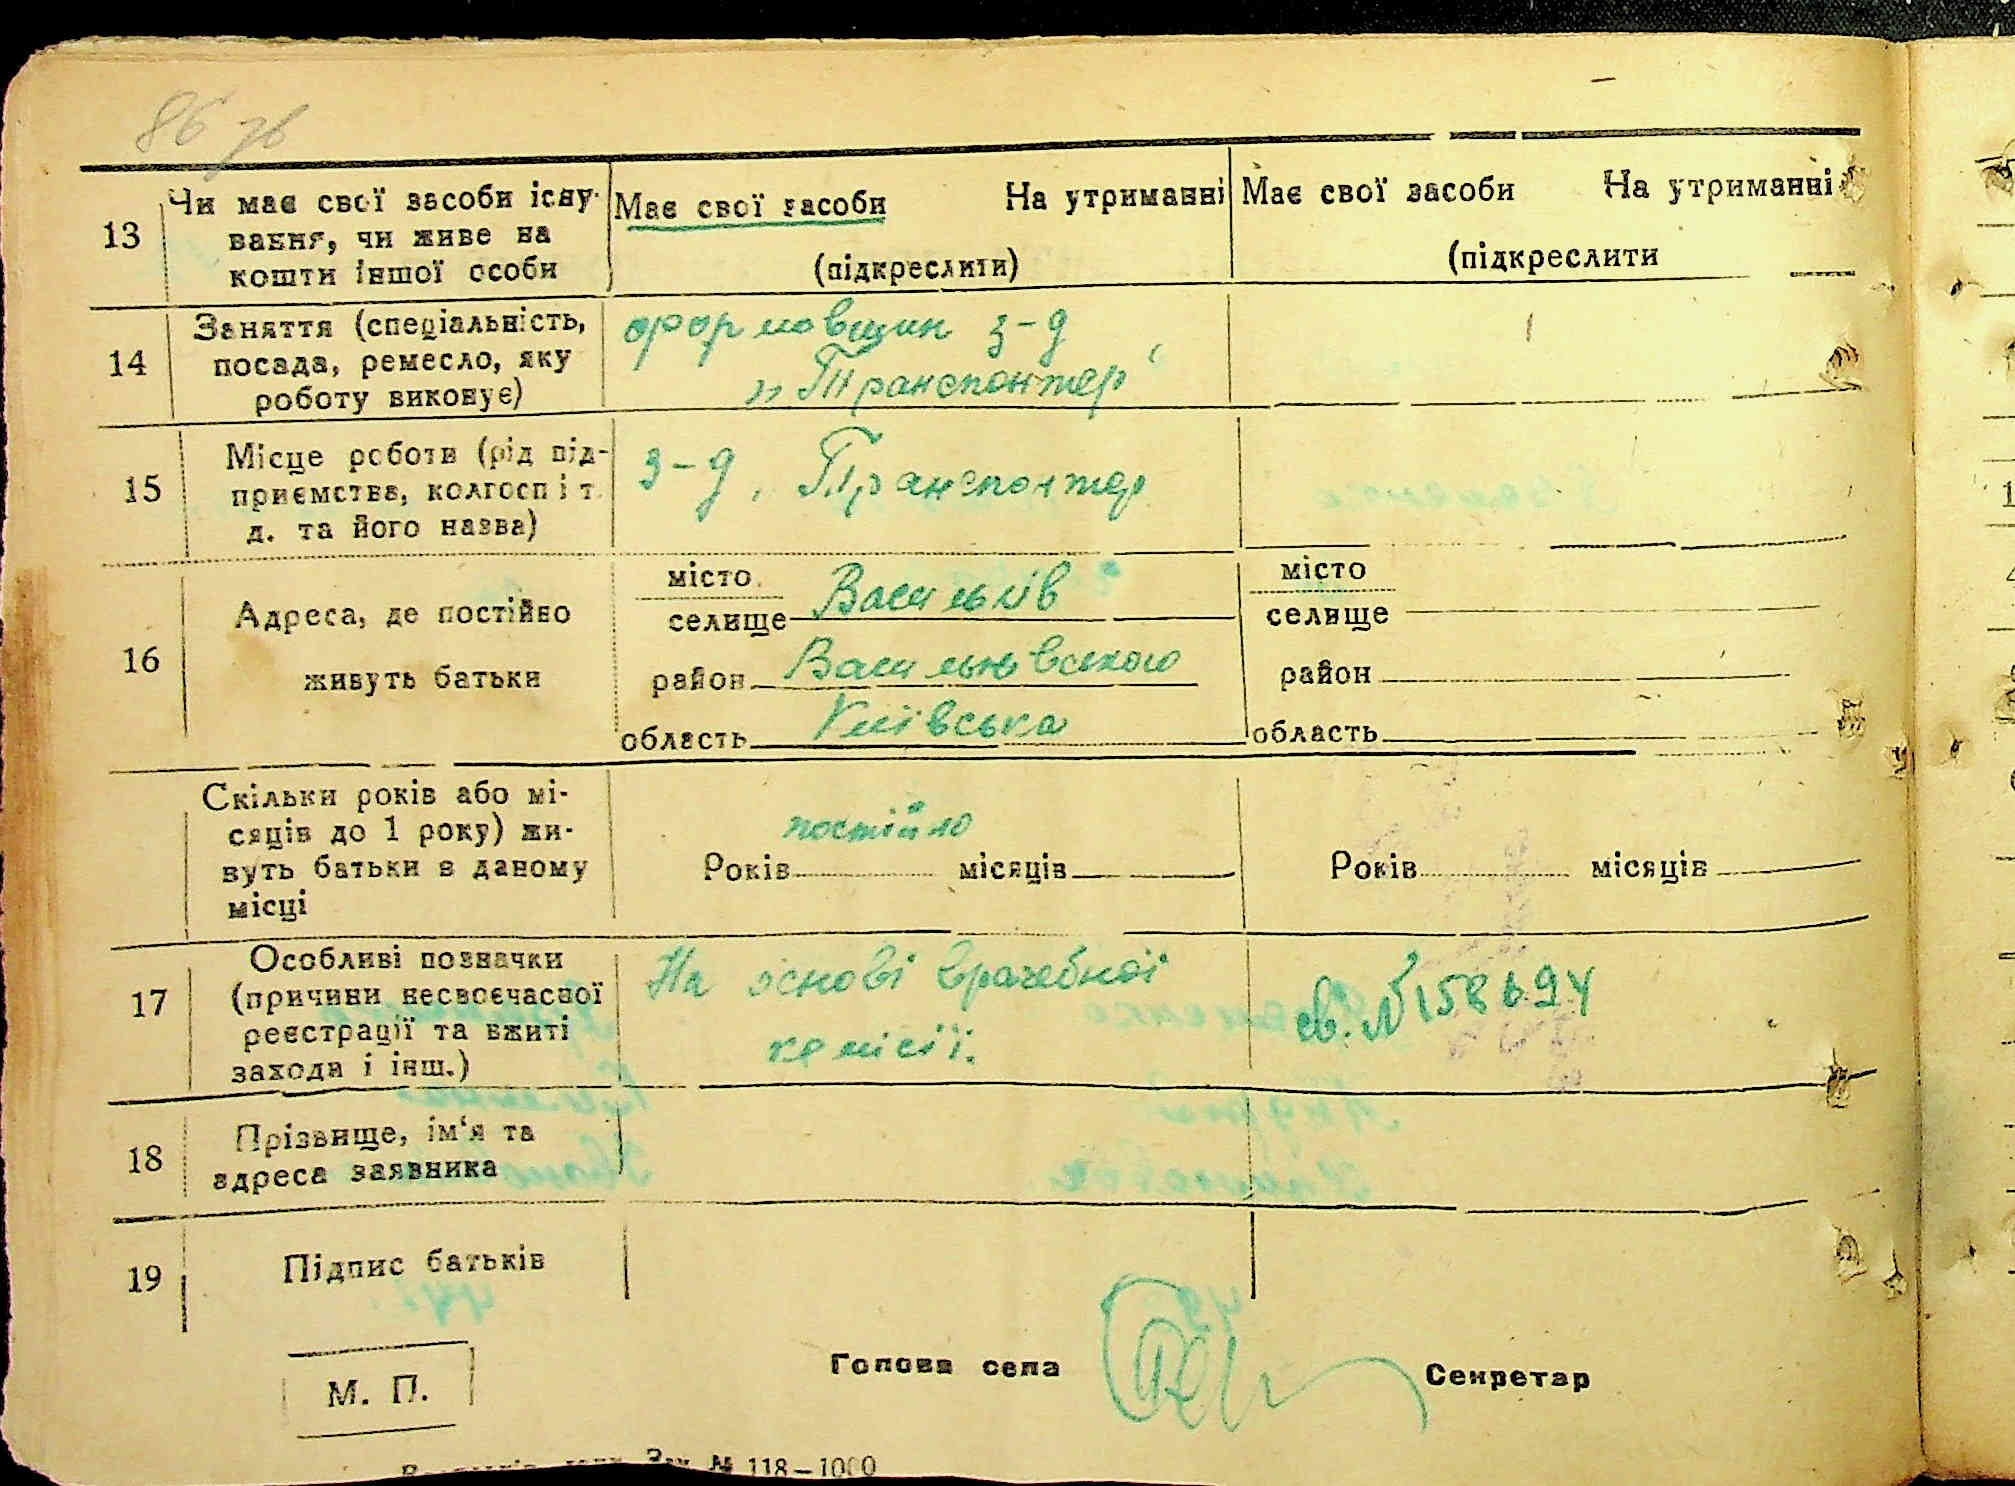 86 зв
13 Чи має свої засоби існу- Має свої засоби На утриманні Має свої засоби На утриманні
вання, чи живе на
кошти іншої особи (підкреслити) (підкреслити
14 Заняття (спеціальність, формовщик з-д
посада, ремесло, яку „Транспонтер“
роботу виконує)
15 Місце роботи (рід під- з-д, Транспонтер
приємства, колгосп і т.
д. та його назва)
16 Адреса, де постійно живуть батьки
місто Васильків місто
селище селище
район Васильківського район
область Київська область
Скільки років або мі-
сяців до 1 року) жи- постійно
вуть батьки в даному Років місяців Років місяців
місці
17 Особливі позначки На основі врачебної св. № 158694
(причини несвоєчасної
реєстрації та вжиті комісії.
заходи і інш.)
18 Прізвище, ім'я та
адреса заявника
19 Підпис батьків
М. П. Голова села Секретар
Зак. № 118—1000